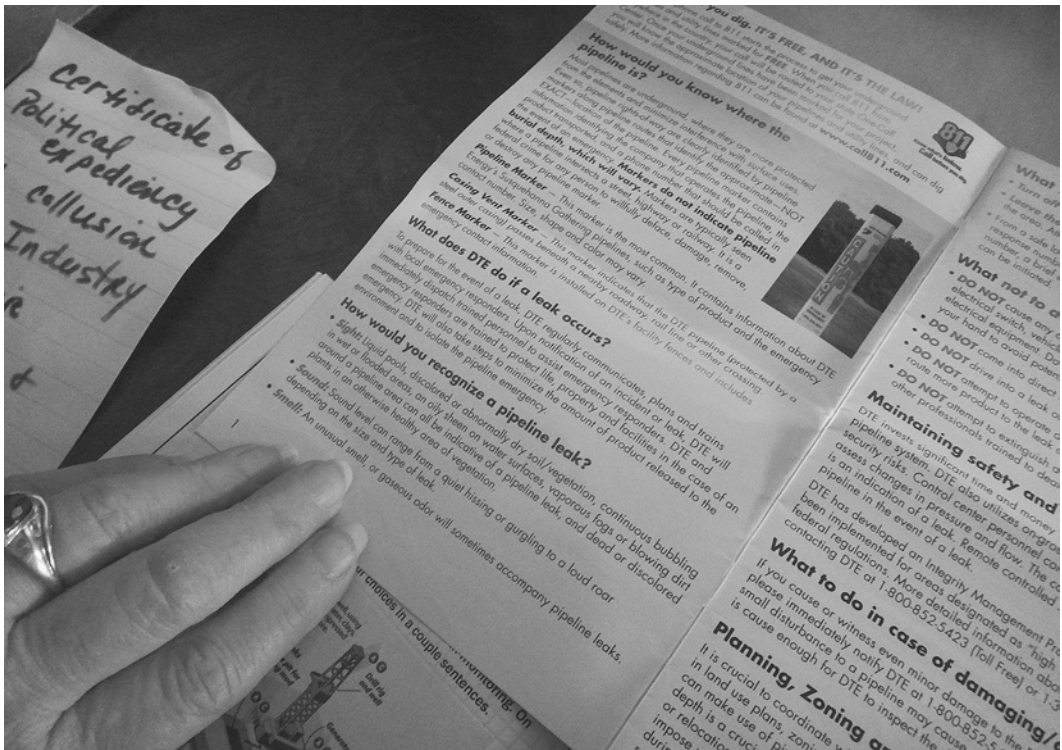 certificate of
Political
expediency
collusion
Industry
&
you dig. IT'S FREE, AND IT'S THE LAW!
811
Know what's below.
Call before you dig.
How would you know where the
pipeline is?
Most pipelines are underground, where they are more protected
from the elements and minimize interference with surface uses.
Even so, pipeline rights-of-way are clearly identified by pipeline
markers along pipeline routes that identify the approximate—NOT
EXACT—location of the pipeline. Every pipeline marker contains
information identifying the company that operates the pipeline, the
product transported, and a phone number that should be called in
the event of an emergency. Markers do not indicate pipeline
burial depth, which will vary. Markers are typically seen
where a pipeline intersects a street, highway or railway. It is a
federal crime for any person to willfully deface, damage, remove,
or destroy any pipeline marker.
Pipeline Marker — This marker is the most common. It contains information about DTE
Energy's Susquehanna Gathering pipelines, such as type of product and the emergency
contact number. Size, shape and color may vary.
Casing Vent Marker — This marker indicates that the DTE pipeline (protected by a
steel outer casing) passes beneath a nearby roadway, rail line or other crossing
Fence Marker — This marker is installed on DTE's facility fences and includes
emergency contact information.
What does DTE do if a leak occurs?
To prepare for the event of a leak, DTE regularly communicates, plans and trains
with local emergency responders. Upon notification of an incident or leak, DTE will
immediately dispatch trained personnel to assist emergency responders. DTE and
emergency responders are trained to protect life, property and facilities in the case of an
emergency. DTE will also take steps to minimize the amount of product released to the
environment and to isolate the pipeline emergency.
How would you recognize a pipeline leak?
• Sight: Liquid pools, discolored or abnormally dry soil/vegetation, continuous bubbling
in wet or flooded areas, an oily sheen on water surfaces, vaporous fogs or blowing dirt
around a pipeline area can all be indicative of a pipeline leak, and dead or discolored
plants in an otherwise healthy area of vegetation.
• Sound: Sound level can range from a quiet hissing or gurgling to a loud roar
depending on the size and type of leak.
• Smell: An unusual smell, or gaseous odor will sometimes accompany pipeline leaks.
CAUTION
What
• Turn
the area
• From a safe
response
number, a brief
can be initiated.
What not to
• DO NOT cause any
electrical switch, vehicle
electrical equipment. Do
your hand to avoid potent
• DO NOT come into direct
• DO NOT drive into a leak
• DO NOT attempt to operate
route more product to the leak
• DO NOT attempt to extinguish
other professionals trained to deal
Maintaining safety and
DTE invests significant time and money
pipeline system. DTE also utilizes
security risks. Control center personnel
assess changes in pressure and flow. The
is an indication of a leak. Remote controlled
pipeline in the event of a leak.
DTE has developed an Integrity Management
been implemented for areas designated as "high
federal regulations. More detailed information
contacting DTE at 1-800-852-5423 (Toll Free) or
What to do in case of damaging/
If you cause or witness even minor damage to the
please immediately notify DTE at 1-800-852-
small disturbance to a pipeline may cause
is cause enough for DTE to inspect the
Planning, Zoning
It is crucial to coordinate
in land use plans, zoning
can make use of
depth is a crucial
or relocation
impose
during
choices in a couple sentences. On
Drill rig
and well